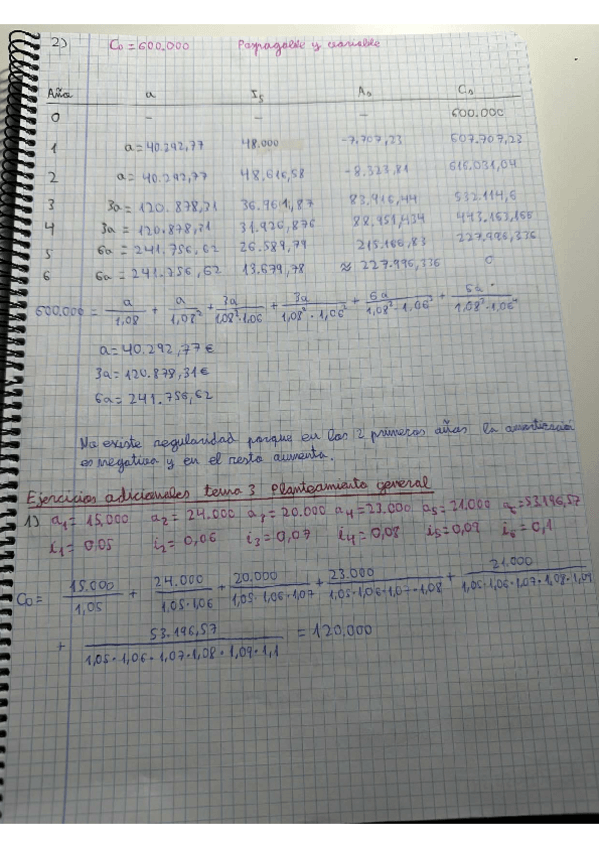 2) C₀ = 600.000 Pospagable y variable
Año a Iₛ Aₛ Cₛ
0 – – – 600.000
1 a = 40.292,77 48.000 -7.707,23 607.707,23
2 a = 40.292,77 48.616,58 -8.323,81 616.031,04
3 3a = 120.878,31 36.961,87 83.916,44 532.114,6
4 3a = 120.878,31 31.926,876 88.951,434 443.163,166
5 6a = 241.756,62 26.589,79 215.166,83 227.996,336
6 6a = 241.756,62 13.679,78 ≈ 227.996,336 0
600.000 = a/1,08 + a/1,08² + 3a/1,08²·1,06 + 3a/1,08²·1,06² + 6a/1,08²·1,06³ + 6a/1,08²·1,06⁴
a = 40.292,77€
3a = 120.878,31€
6a = 241.756,62
No existe regularidad porque en los 2 primeros años la amortización
es negativa y en el resto aumenta.
Ejercicios adicionales tema 3 Planteamiento general
1) a₁ = 15.000 a₂ = 24.000 a₃ = 20.000 a₄ = 23.000 a₅ = 21.000 a₆ = 53.196,57
i₁ = 0,05 i₂ = 0,06 i₃ = 0,07 i₄ = 0,08 i₅ = 0,09 i₆ = 0,1
C₀ = 15.000/1,05 + 24.000/1,05·1,06 + 20.000/1,05·1,06·1,07 + 23.000/1,05·1,06·1,07·1,08 + 21.000/1,05·1,06·1,07·1,08·1,09
+ 53.196,57/1,05·1,06·1,07·1,08·1,09·1,1 = 120.000